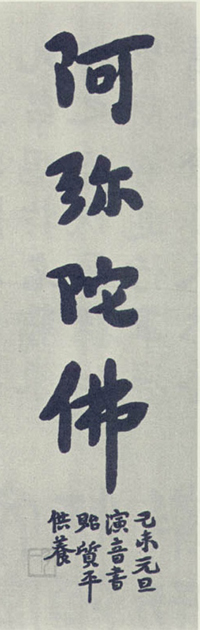 阿弥陀佛
己未元旦
演音書
貽質平
供養